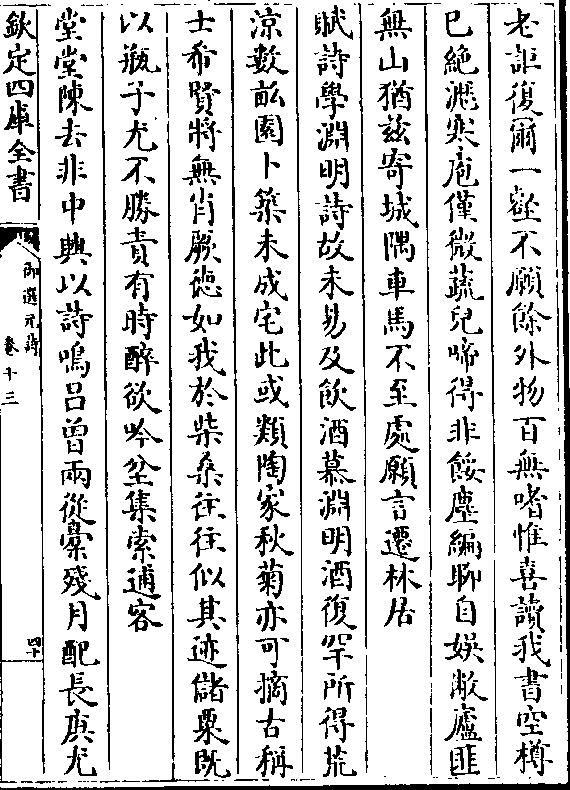 老詎復爾一壑不願餘外物百無嗜惟喜讀我書空樽
已絶瀝寒庖僅微蔬兒啼得非餒塵編聊自娱敝廬匪
無山猶兹寄城隅車馬不至處願言遷林居
賦詩學淵明詩故未易及飲酒慕淵明酒復罕所得荒
涼數畝園卜築未成宅此或類陶家秋菊亦可摘古稱
士希賢將無肖厥徳如我於柴桑往往似其迹儲粟既
以瓶子尤不勝責有時醉欲吟坌集索逋客
堂堂陳去非中興以詩鳴吕曾兩從槖殘月配長庚尤
欽定四庫全書
御選元詩
卷十三
四十